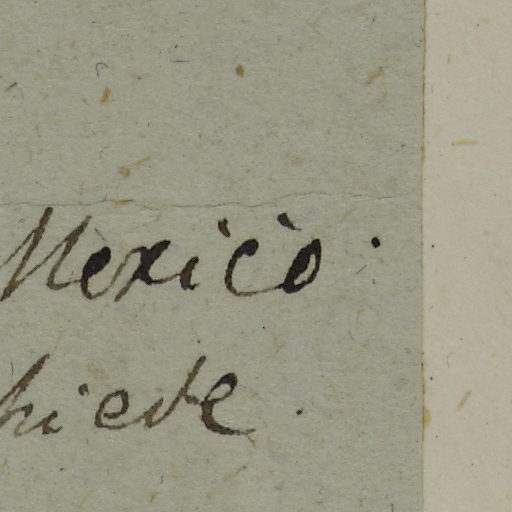 Mexico.
hiede.